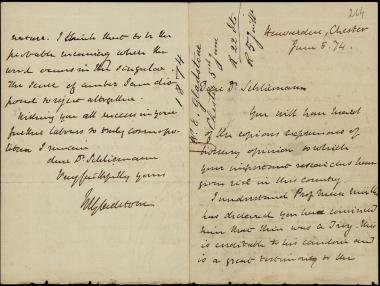 264
Hawarden, Chester
June 5. 74.
Dear Dr Schliemann
You will have heard
the copious expressions of
literary opinion to which
your important researches have
given rise in this country.
I understand Prof. Max Müller
has declared you have convinced
him that there was a Troy. This
is creditable to his candour and
is a great testimony to the
nature. I think that to be the
probable meaning where the
word occurs in the singular
the sense of amber I am dis
posed to reject altogether.
Wishing you all success in your
further labours so truly cosmopo
litan I remain
dear Dr Schliemann
Very faithfully yours
W E Gladstone
1874
W. E. Gladstone
Chester 5 June